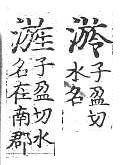 子盈切
水名
子盈切水
名在南郡